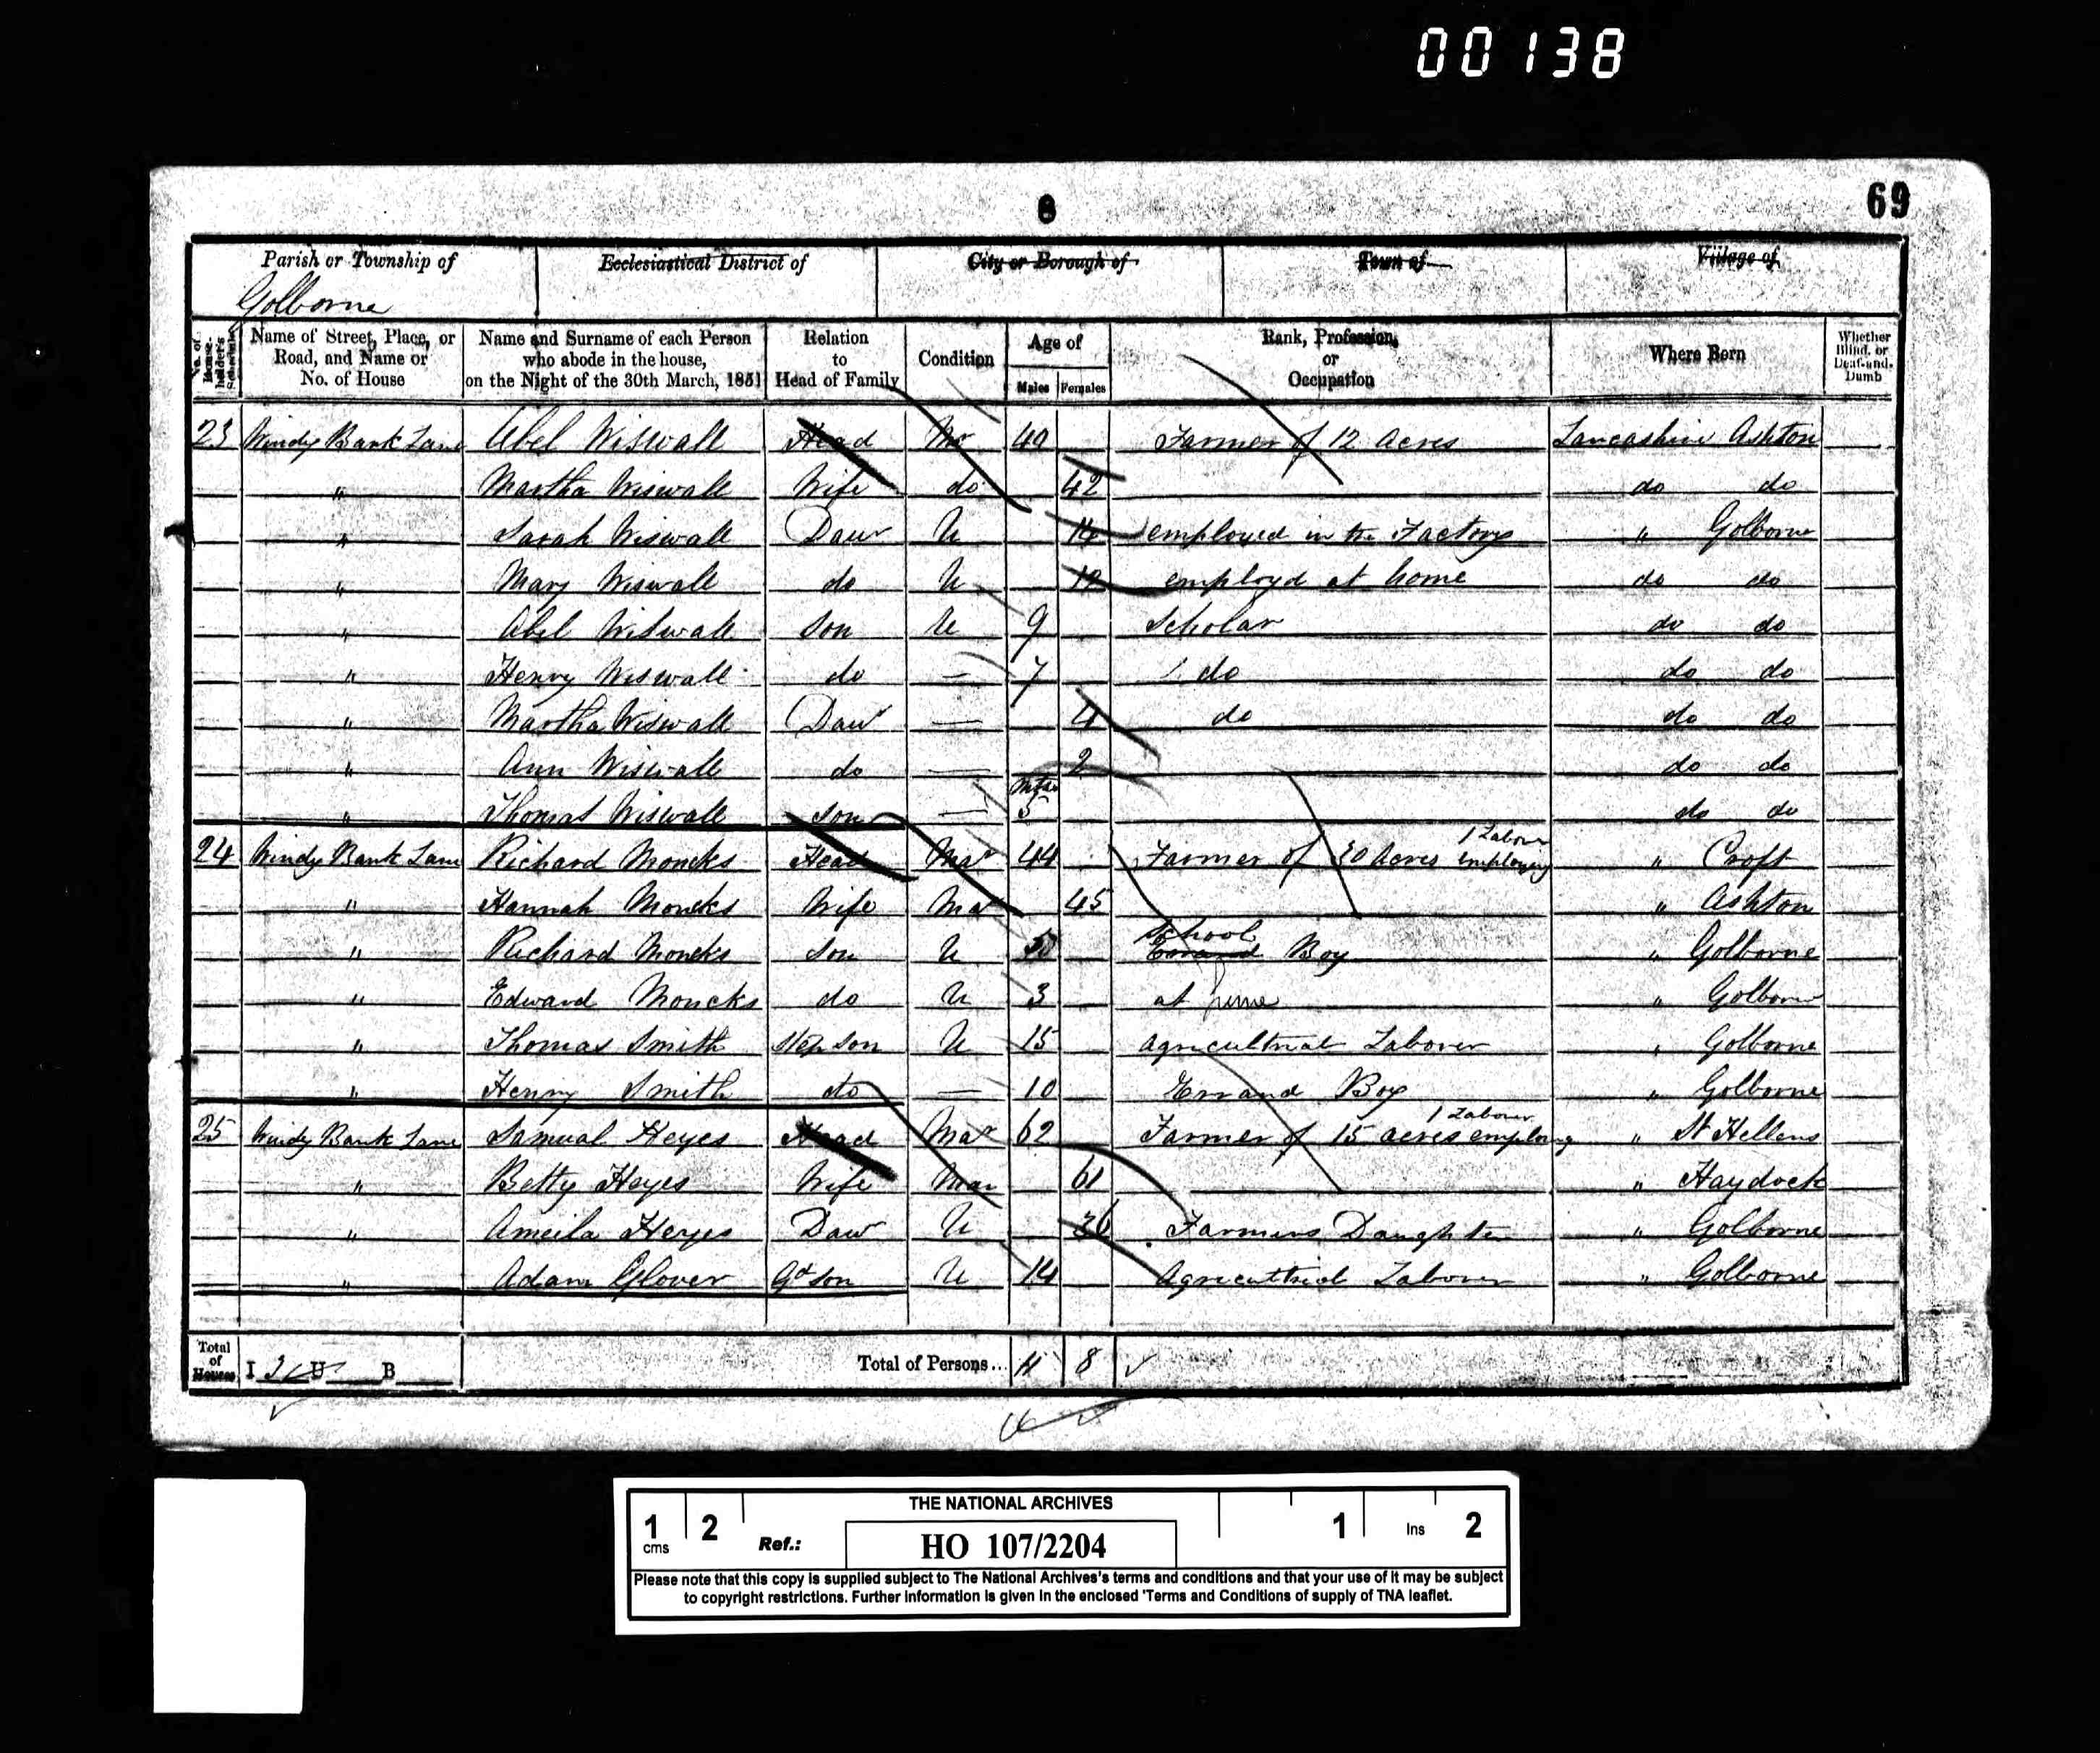 00138
69
8
Parish or Township of
Golborne
Ecclesiastical District of
City or Borough of
Town of
Village of
No. of House-holder's Schedule
Name of Street, Place, or Road, and Name or No. of House
Name and Surname of each Person who abode in the house, on the Night of the 30th March, 1851
Relation to Head of Family
Condition
Age of
Males Females
Rank, Profession, or Occupation
Where Born
Whether Blind, or Deaf-and-Dumb
23 Windy Bank Lane Abel Wiswall Head Mr 40 Farmer of 12 Acres Lancashire Ashton
" Martha Wiswall Wife do 42 do do
" Sarah Wiswall Daur U 14 employed in the Factory " Golborne
" Mary Wiswall do U 12 employd at home do do
" Abel Wiswall Son U 9 Scholar do do
" Henry Wiswall do — 7 do do do
" Martha Wiswall Daur — 4 do do do
" Ann Wiswall do — 2 do do
" Thomas Wiswall son — Mths 5 do do
24 Windy Bank Lane Richard Moncks Head Mar 44 Farmer of 30 Acres employing 1 Labour " Croft
" Hannah Moncks Wife Mar 45 " Ashton
" Richard Moncks Son U School Errand Boy " Golborne
" Edward Moncks do U 3 at home " Golborne
" Thomas Smith Step Son U 15 Agricultural Labourer " Golborne
" Henry Smith do — 10 Errand Boy " Golborne
25 Windy Bank Lane Samual Heyes Head Mar 62 Farmer of 15 acres employing 1 Labour " St Hellens
" Betty Heyes Wife Mar 61 " Haydock
" Ameila Heyes Daur U 26 Farmers Daughter " Golborne
" Adam Glover Gd son U 14 Agricultural Labourer " Golborne
Total of Houses I 3 U B
Total of Persons... 11 8
THE NATIONAL ARCHIVES
1 cms 2
Ref.: HO 107/2204
1 Ins 2
Please note that this copy is supplied subject to The National Archives's terms and conditions and that your use of it may be subject
to copyright restrictions. Further information is given in the enclosed 'Terms and Conditions of supply of TNA leaflet.